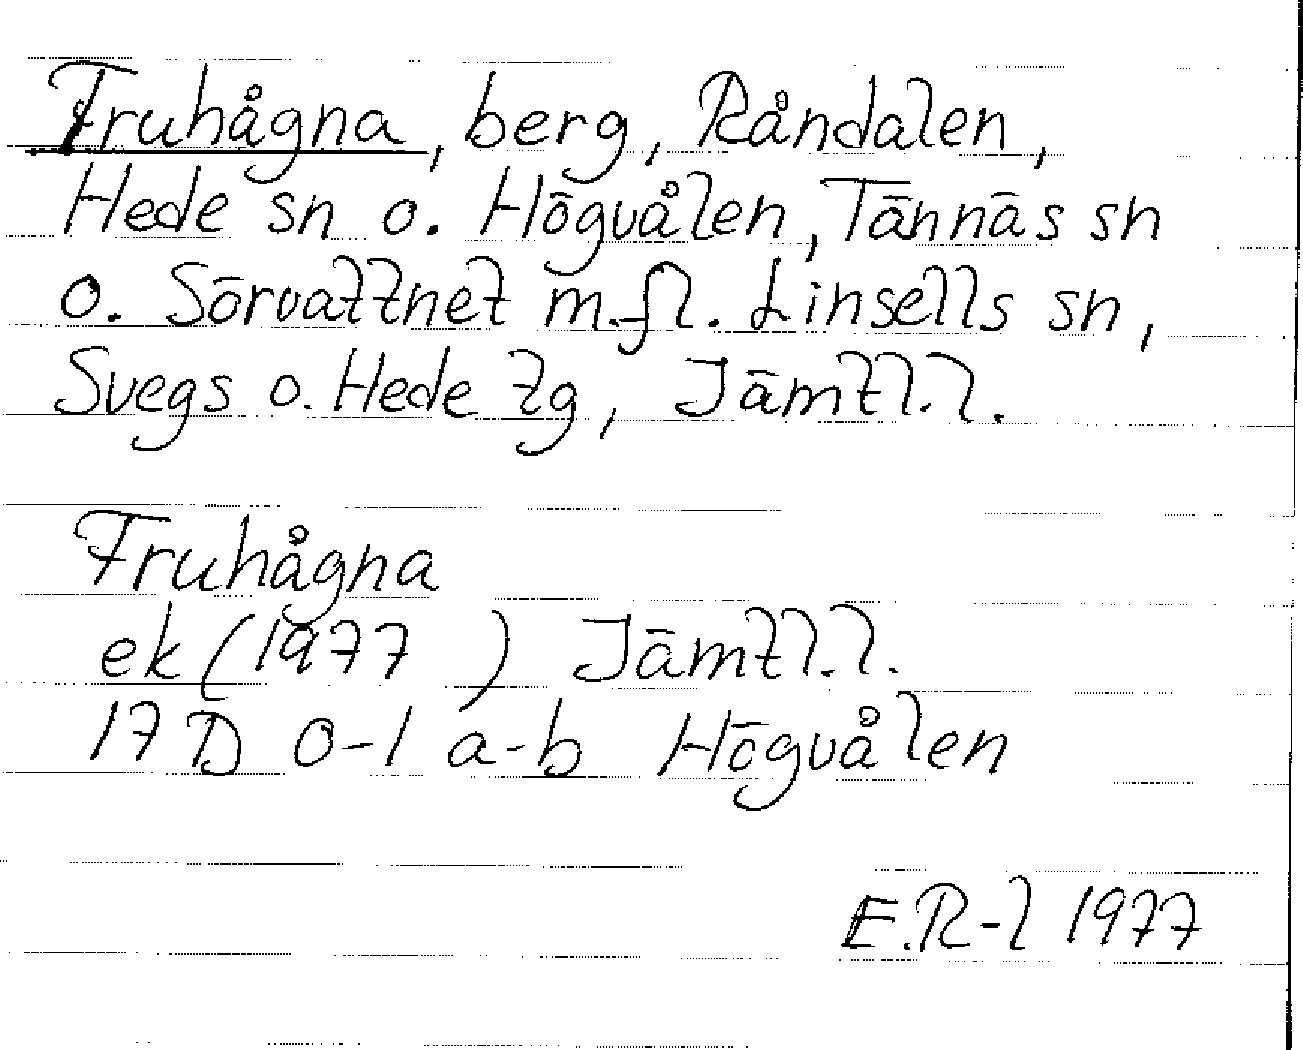 Fruhågna, berg, Råndalen,
Hede sn o. Högvålen, Tännäs sn
o. Sörvattnet m.fl. Linsells sn,
Svegs o. Hede tg, Jämtl.l.
Fruhågna
ek (1977 ) Jämtl.l.
17 D 0-1 a-b Högvålen
E.R-l 1977